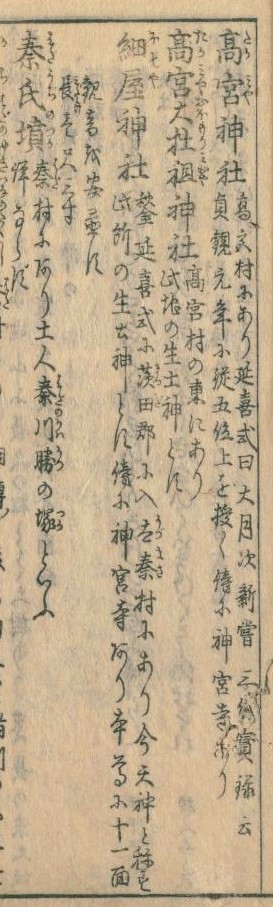 高宮神社 高宮村にあり延喜式曰大月次新嘗三代實録云
貞観元年に従五位上を授く傍に神宮寺あり
高宮大杜祖神社 高宮村の東にあり
此地の生土神とす
細屋神社 鍪延喜式に茨田郡に入太秦村にあり今天神と称す
此所の生土神とす傍に神宮寺あり本尊に十一面
観音を安置す
長
秦氏墳 秦村にあり土人秦川勝の塚といふ
詳ならず